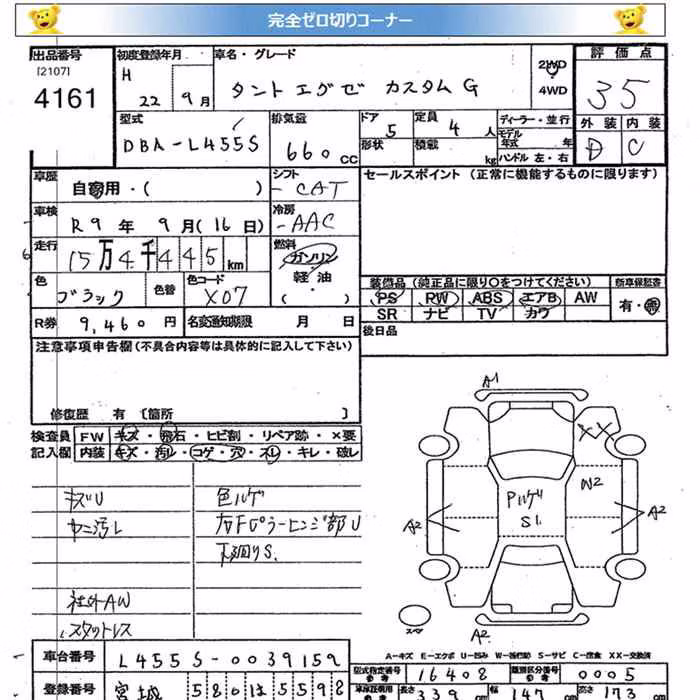 完全ゼロ切りコーナー
出品番号 初度登録年月 車名・グレード 評価点
[2107] H 2WD
4161 22年 9月 タントエグゼ カスタムG 4WD 35
型式 排気量 ドア 定員 ディーラー・並行 外装 内装
DBA-L455S 660cc 5 4人 モデル年式 年 D C
形状 積載 kg ハンドル 左・右
車歴 自家用・( ) シフト -CAT セールスポイント (正常に機能するものに限ります)
車検 R9年 9月(16日) 冷房 -AAC
走行 15万4千445km 燃料 ガソリン
軽油
( )
色 ブラック 色替 色コード X07 装備品(純正品に限り○をつけてください) 新車保証書
PS PW ABS エアB AW 有・無
SR ナビ TV カワ
R券 9,460円 名変通知期限 月 日 後日品
注意事項申告欄(不具合内容等は具体的に記入して下さい)
修復歴 有 [箇所 ]
検査員 FW キズ・飛石・ヒビ割・リペア跡・×要
記入欄 内装 キズ・汚レ・コゲ・穴・スレ・キレ・破レ
キズU 色ハゲ
ヤニ汚レ 右Fピラーヒンジ部U
下廻りS.
社外AW
スタットレス
A1
XX
W2
Pハゲ
S1.
A2
A2
スペア
A2
A-キズ E-エクボ U-凹み W-補修跡 S-サビ C-腐食 XX-交換済
車台番号 L455S-0039159 型式指定番号 参考 16408 類別区分番号 参考 0005
登録番号 宮城 580 ほ 5598 車検証備用 参考 長さ 339cm 幅 147cm 高さ 175cm